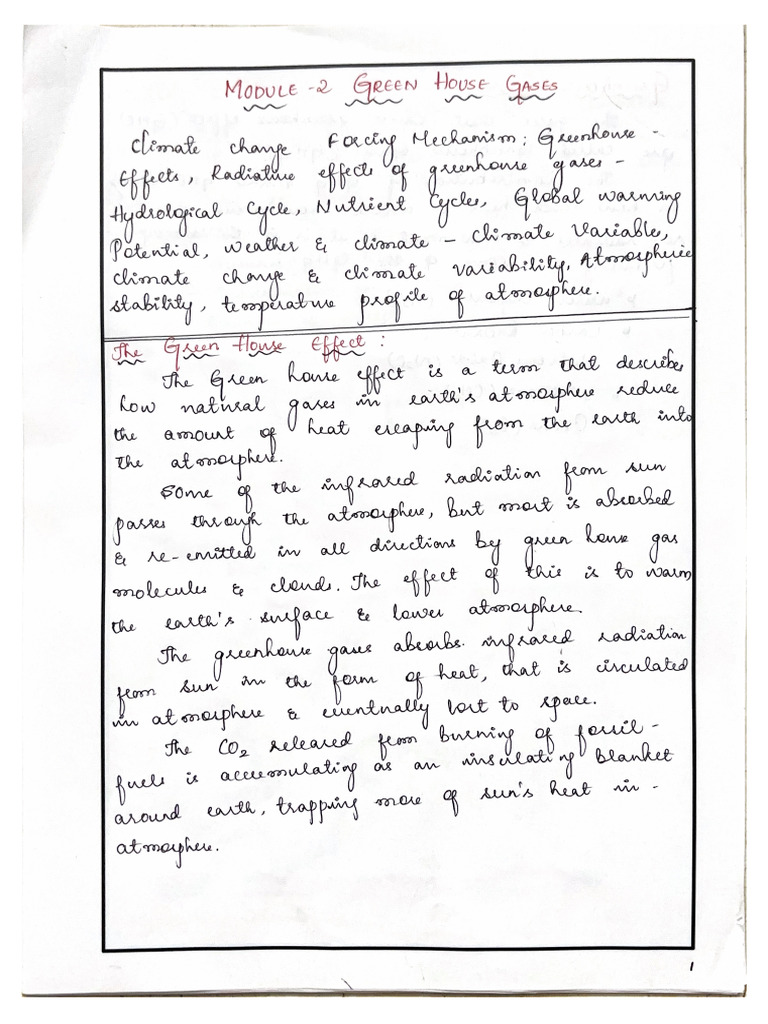 MODULE -2 GREEN HOUSE GASES
Climate change Forcing Mechanism: Greenhouse -
Effects, Radiative effects of greenhouse gases -
Hydrological Cycle, Nutrient Cycles, Global warming
Potential, weather & climate - Climate Variable,
climate change & climate variability, Atmospheric
stability, temperature profile of atmosphere.
The Green House Effect :
The Green house effect is a term that describes
how natural gases in earth's atmosphere reduce
the amount of heat escaping from the earth into
the atmosphere.
Some of the infrared radiation from sun
passes through the atmosphere, but most is absorbed
& re-emitted in all directions by green house gas
molecules & clouds. The effect of this is to warm
the earth's surface & lower atmosphere.
The greenhouse gases absorbs infrared radiation
from sun in the form of heat, that is circulated
in atmosphere & eventually lost to space.
The CO2 released from burning of fossil -
fuels is accumulating as an insulating blanket
around earth, trapping more of sun's heat in -
atmosphere.
1